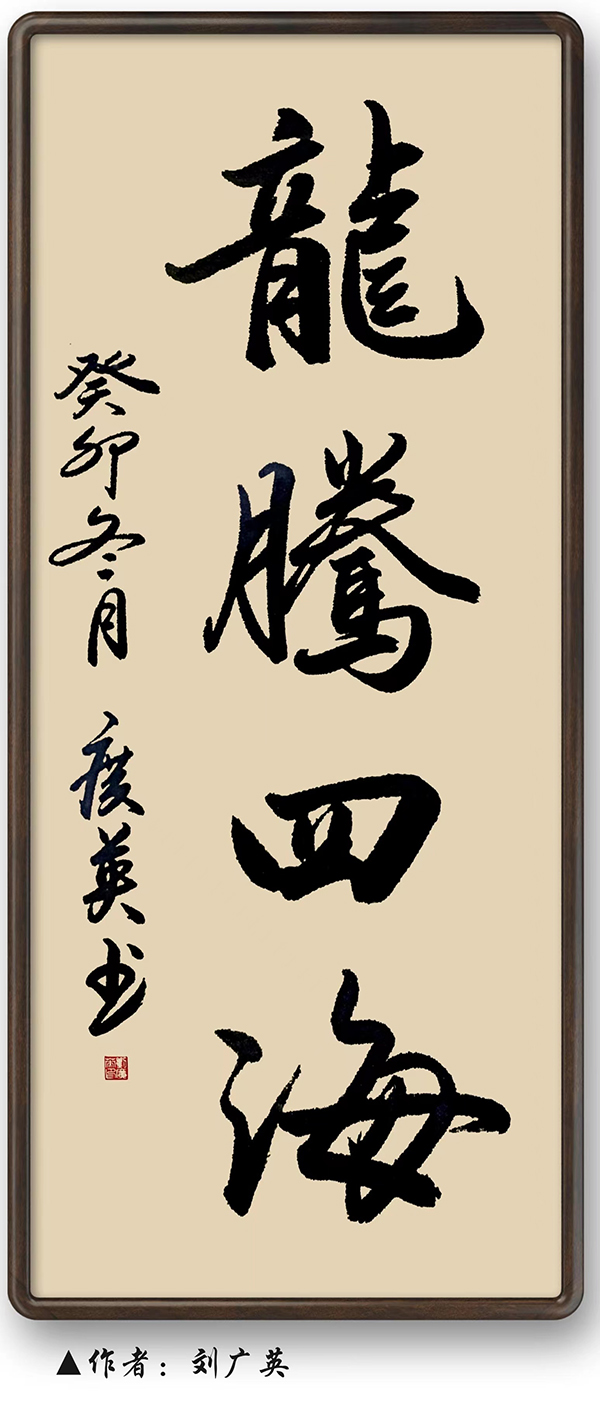 龍騰四海
癸卯冬月 廣英书
▲作者：刘广英